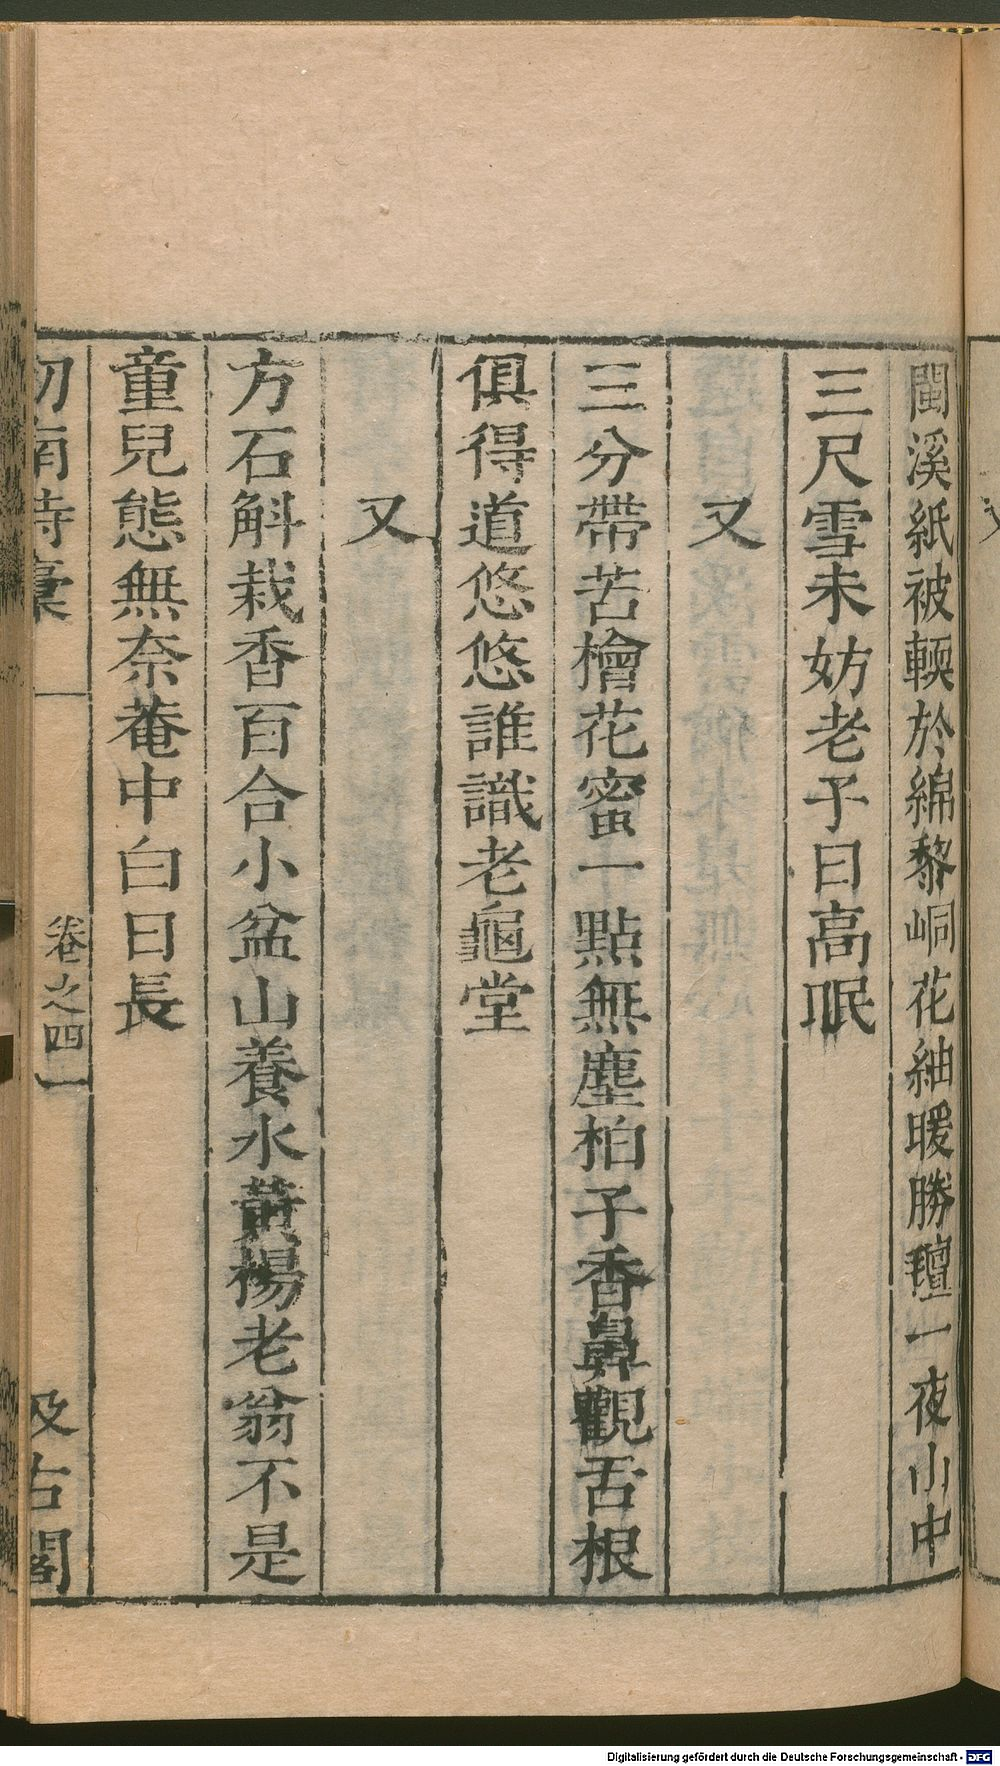 閩溪紙被輭於綿黎峒花紬暖勝氊一夜山中
三尺雪未妨老子日高眠
又
三分帶苦檜花蜜一點無塵柏子香鼻觀舌根
俱得道悠悠誰識老龜堂
又
方石斛栽香百合小盆山養水黃楊老翁不是
童兒態無奈菴中白日長
劒南詩稾
卷之四一
汲古閣
Digitalisierung gefördert durch die Deutsche Forschungsgemeinschaft - DFG